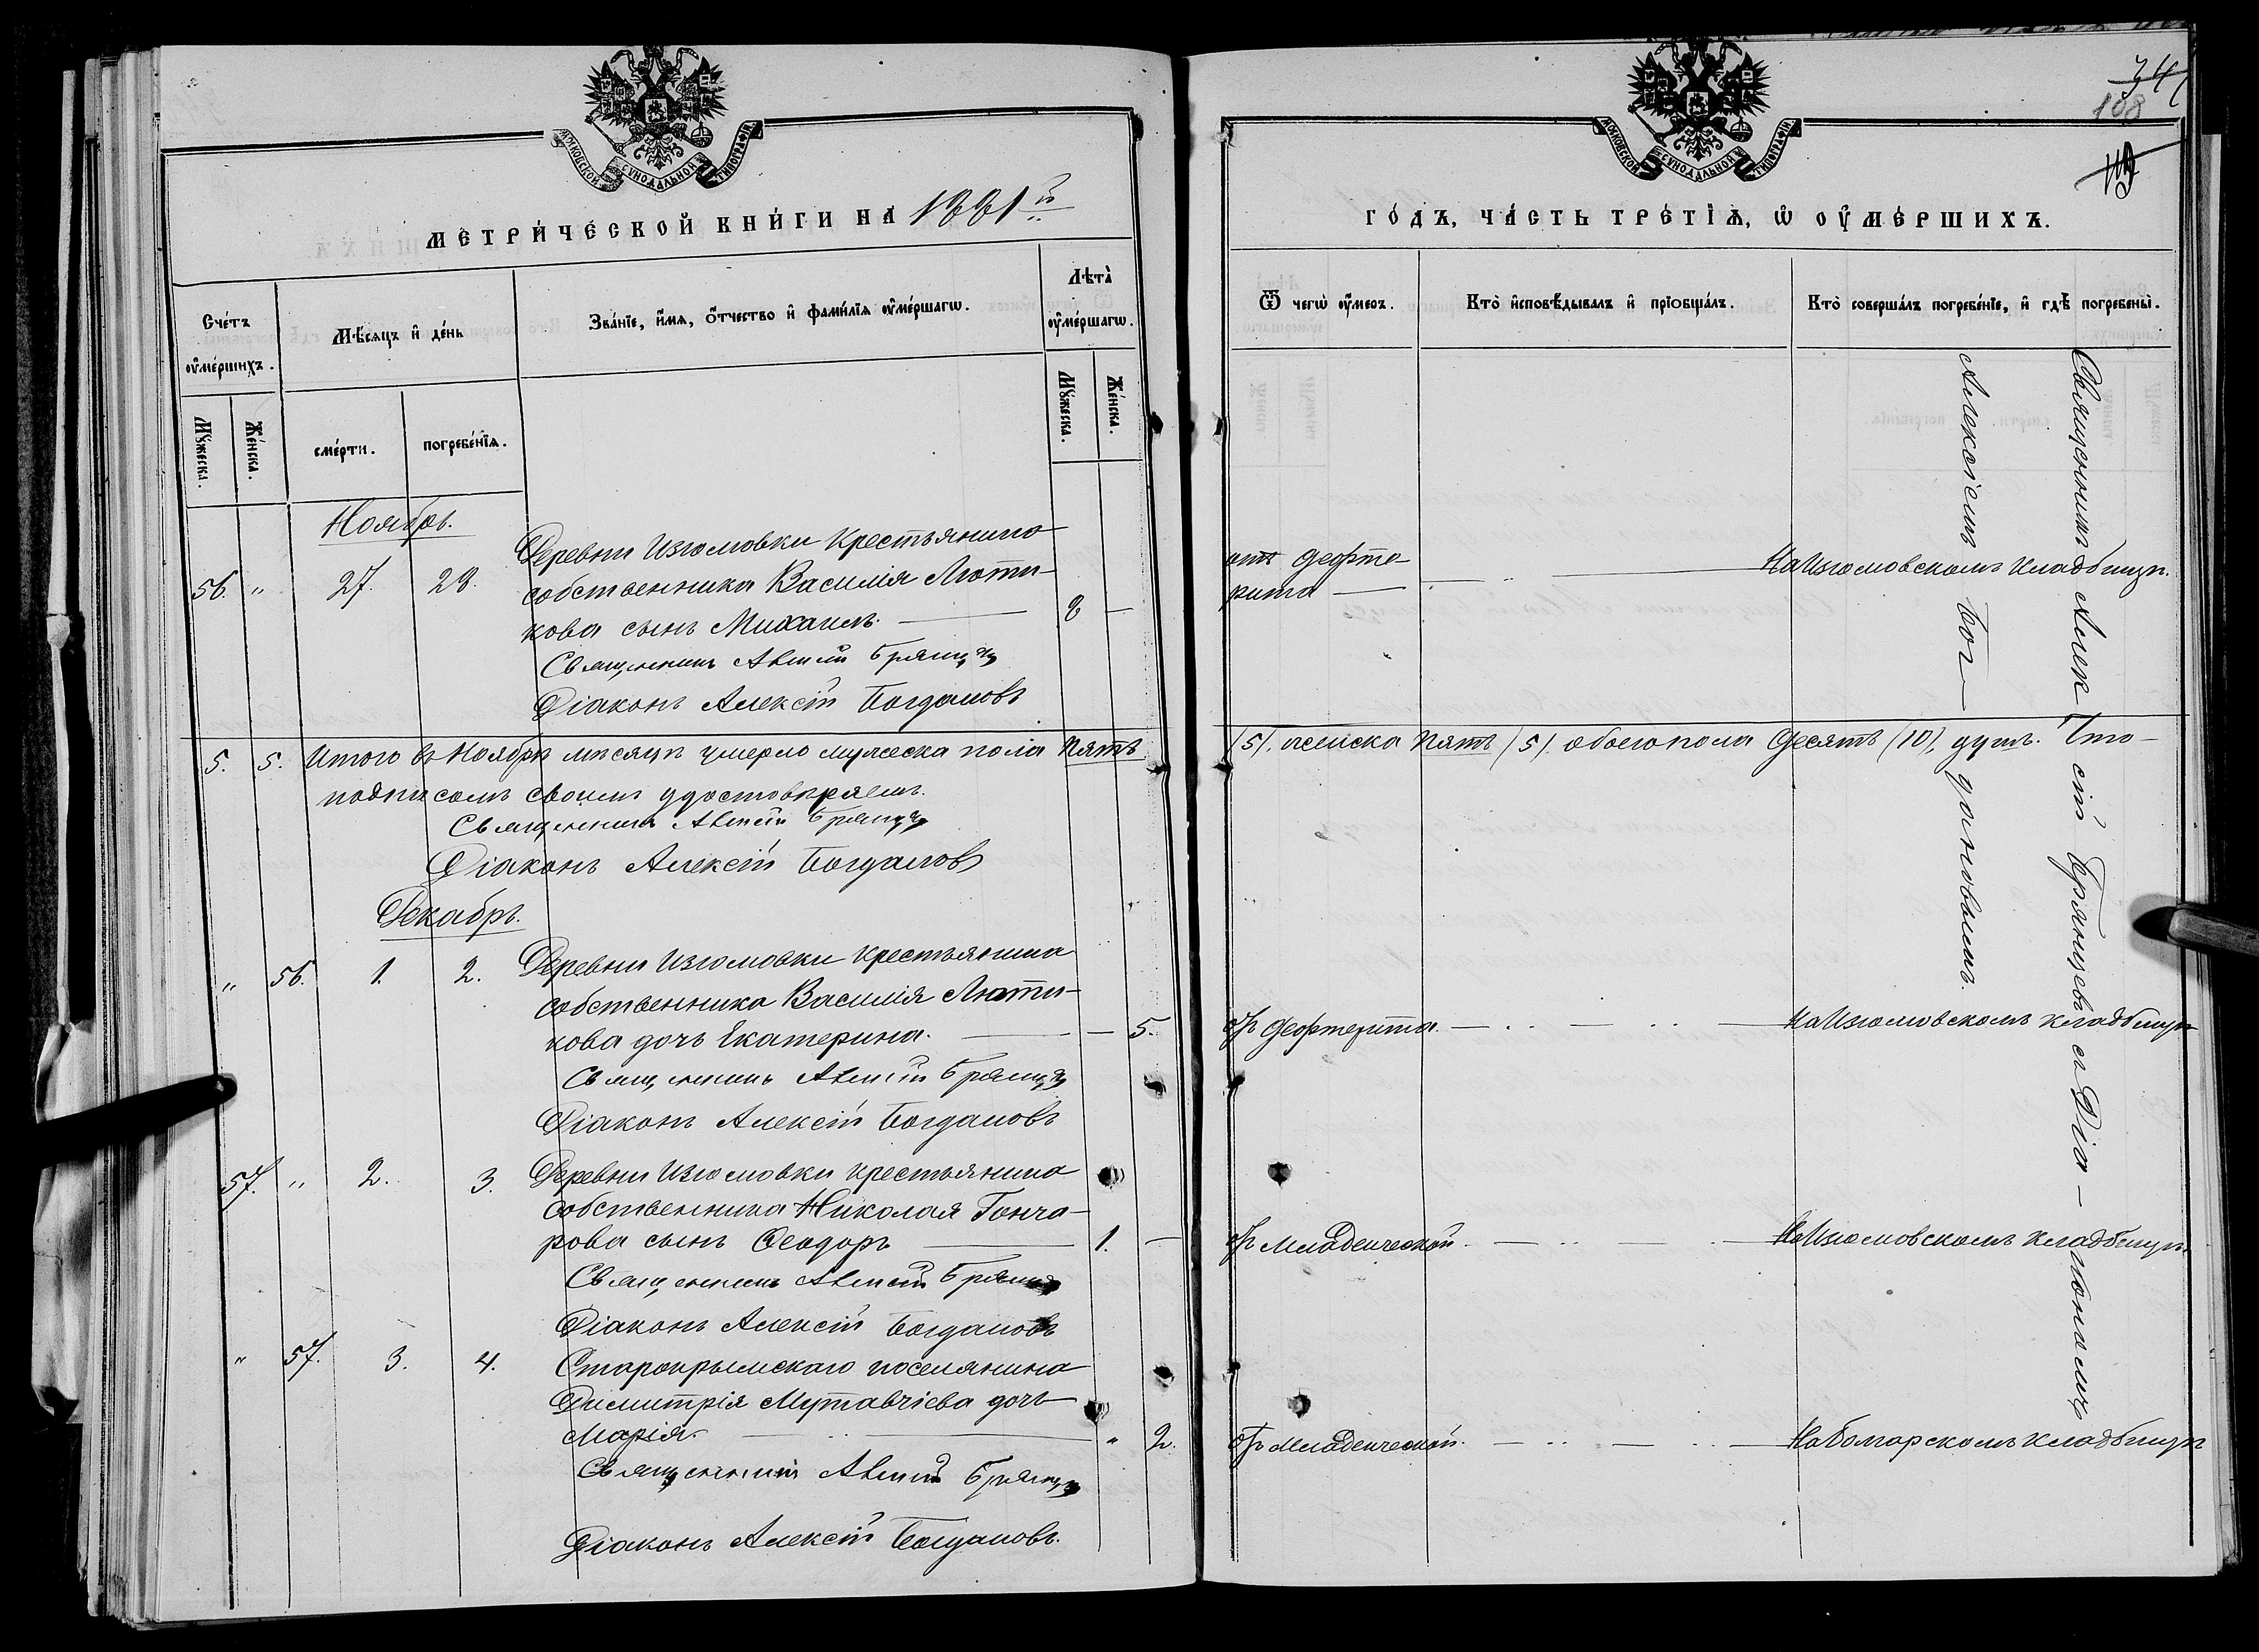 МОСКОВСКОЙ СѴНОДАЛЬНОЙ ТИПОГРАФІИ
МЕТРИЧЕСКОЙ КНИГИ НА 1881й
Счетъ
умершихъ.
Мужеска.
Женска.
Мѣсяцъ и день
смерти.
погребенія.
Званіе, имя, отчество и фамилія умершагѡ.
Лѣта
умершагѡ.
Мужеска.
Женска.
Ноябрь.
56. „ 27. 28. Деревни Изюмовки крестьянина
собственника Василія Люти-
кова сынъ Михаилъ. 8 —
Священникъ Алексій Брянцевъ
Діаконъ Алексій Богдановъ
5. 5. Итого въ Ноябрѣ мѣсяцѣ умерло мужеска пола пять
подписомъ своимъ удостовѣряемъ.
Священникъ Алексій Брянцевъ
Діаконъ Алексій Богдановъ
Декабрь.
„ 56. 1. 2. Деревни Изюмовки крестьянина
собственника Василія Люти-
кова дочь Екатерина. — 5.
Священникъ Алексій Брянцевъ
Діаконъ Алексій Богдановъ
57. „ 2. 3. Деревни Изюмовки крестьянина
собственника Николая Гонча-
рова сынъ Ѳеодоръ 1. —
Священникъ Алексій Брянцевъ
Діаконъ Алексій Богдановъ
„ 57. 3. 4. Старокрымскаго поселянина
Димитрія Мутавчіева дочь
Марія. „ 2.
Священникъ Алексій Брянцевъ
Діаконъ Алексій Богдановъ.
34
108
МОСКОВСКОЙ СѴНОДАЛЬНОЙ ТИПОГРАФІИ
ГОДЪ, ЧАСТЬ ТРЕТІЯ, Ѡ УМЕРШИХЪ.
Ѿ чегѡ умеръ.
Кто исповѣдывалъ и пріобщалъ.
Кто совершалъ погребеніе, и гдѣ погребены.
отъ дефте-
рита
На Изюмовскомъ кладбищѣ.
(5), женска пять (5), обоего пола десять (10), душъ. Что-
от дефтерита.
На Изюмовскомъ кладбищѣ
от младенческой.
На Изюмовскомъ кладбищѣ.
от младенческой.
На Болгарскомъ кладбищѣ
Священникъ Алек-сій Брянцевъ съ Діа-кономъ
Алексіемъ Бог-дановымъ.